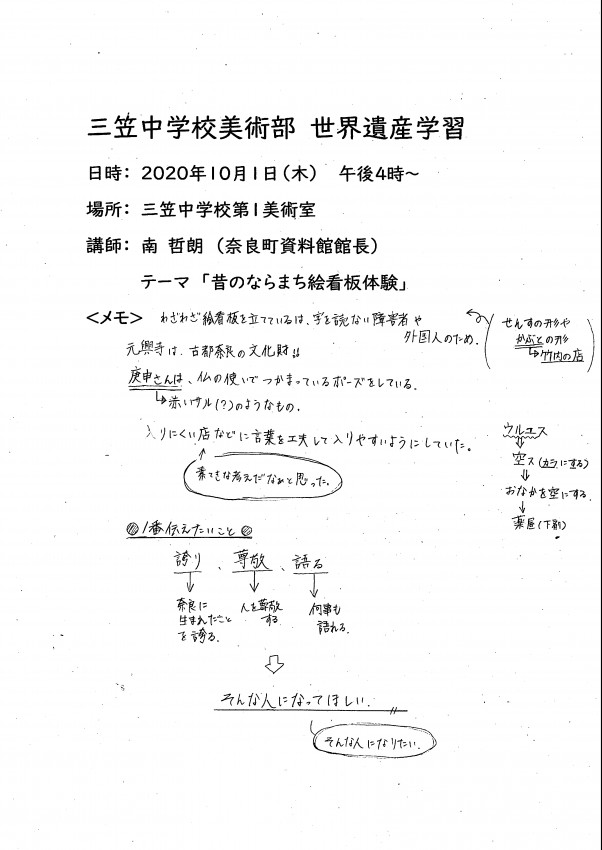 三笠中学校美術部 世界遺産学習
日時： 2020年10月1日（木） 午後4時～
場所： 三笠中学校第1美術室
講師： 南 哲朗 （奈良町資料館館長）
テーマ 「昔のならまち絵看板体験」
＜メモ＞ わざわざ絵看板を立てているは、字を読ない障害者や
外国人のため。
せんすの形や
かぶとの形
↳竹内の店
元興寺は、古都奈良の文化財!!
庚申さんは、仏の使いでつかまっているポーズをしている。
↳赤いサル(?)のようなもの.
入りにくい店などに言葉を工夫して入りやすいようにしていた。
↑
素てきな考えだなぁと思った。
ウルエス
⇓
空ス(カラにする)
⇓
おなかを空にする.
↓
薬屋(下剤)
◎1番伝えたいこと◎
誇り 、尊敬 、語る
↓ ↓ ↓
奈良に 人を尊敬 何事も
生まれたこと する. 語れる.
を誇る.
⇩
そんな人になってほしい.
そんな人になりたい.